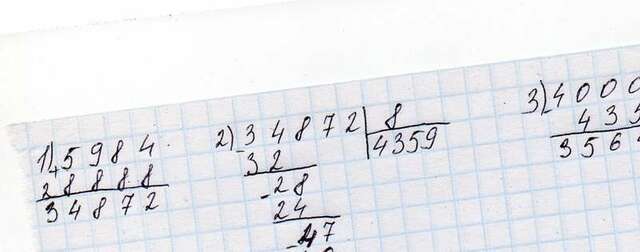 1) 5984
+
28888
34872
2) 34872 | 8
- 32 4359
- 28
24
- 47
3) 4000
- 435
356